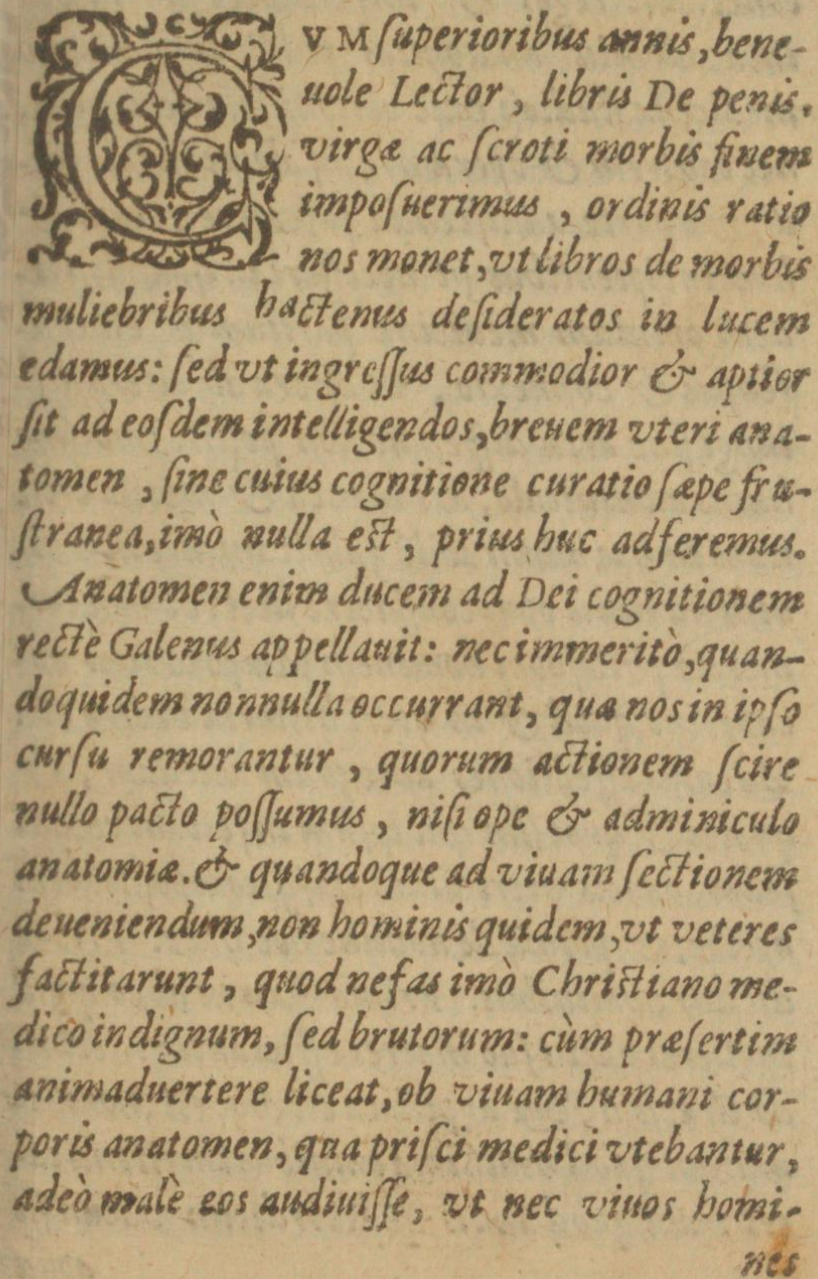 CVM ſuperioribus annis, bene-
uole Lector, libris De penis.
virgæ ac ſcroti morbis finem
impoſuerimus, ordinis ratio
nos monet, vt libros de morbis
muliebribus hactenus deſideratos in lucem
edamus: ſed vt ingreſſus commodior & aptior
ſit ad eoſdem intelligendos, breuem vteri ana-
tomen, ſine cuius cognitione curatio ſæpe fru-
ſtranea, imò nulla est, prius huc adferemus.
Anatomen enim ducem ad Dei cognitionem
rectè Galenus appellauit: nec immeritò, quan-
doquidem nonnulla occurrant, quæ nos in ipſo
curſu remorantur, quorum actionem ſcire
nullo pacto poſſumus, niſi ope & adminiculo
anatomiæ. & quandoque ad viuam ſectionem
deueniendum, non hominis quidem, vt veteres
factitarunt, quod nefas imò Christiano me-
dico indignum, ſed brutorum: cùm præſertim
animaduertere liceat, ob viuam humani cor-
poris anatomen, qua priſci medici vtebantur,
adeò malè eos audiuiſſe, vt nec viuos homi-
nes